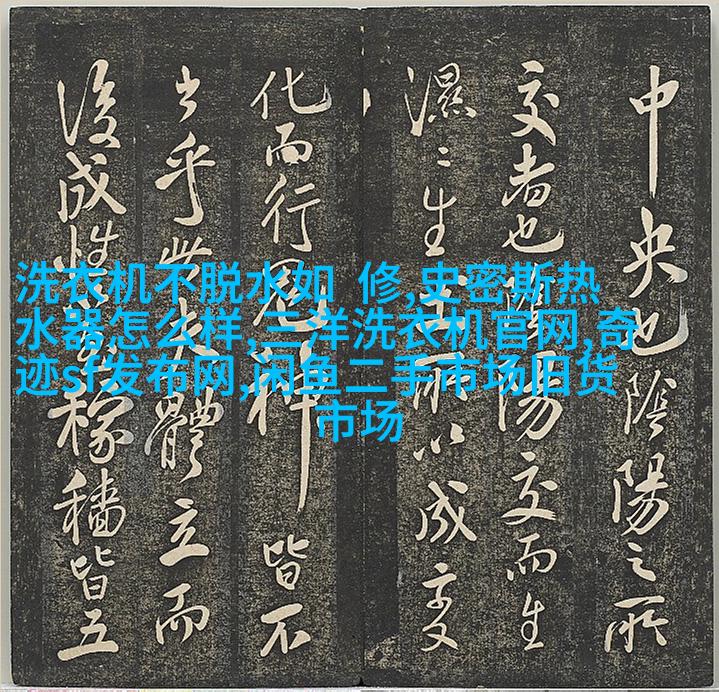 中央也陰陽之所
交者也陰陽交而生
濕〻生土所以成变
化而行鬼神皆不
乎此 體立而
後成性 稼穡皆五
洗衣机不脱水如 修,史密斯热
水器怎么样,三洋洗衣机官网,奇
迹sf发布网,闲鱼二手市场旧货
市场